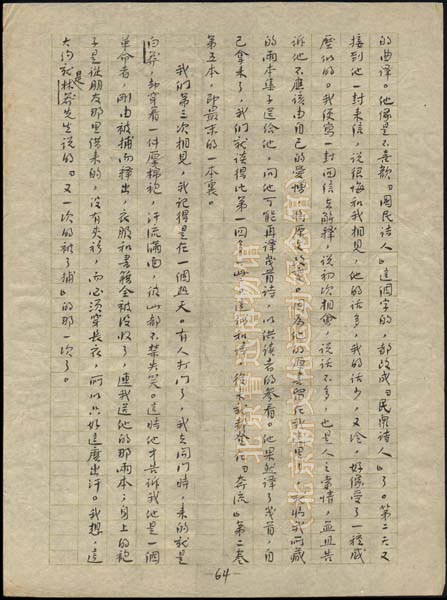 的曲譯。他像是不喜歡「國民詩人」這個字的，都改成「民衆詩人」了。第二天又
接到他一封來信，說很悔和我相見，他的話多，我的話少，又冷，好像受了一種威
壓似的。我便寫一封回信去解釋，說初次相會，說話不多，也是人之常情，並且告
訴他不應該由自己的愛憎，將原文改變。因爲他的原書留在我這里了，就將我所藏
的兩本集子送給他，問他可能再譯幾首詩，以供讀者的參看。他果然譯了幾首，自
己拿來了，我們就談得比第一回多一些。這傳和詩，後來就都登在「奔流」第二卷
第五本，即最末的一本裏。
我們第三次相見，我記得是在一個熱天。有人打門了，我去開門時，來的就是
白莽，却穿着一件厚棉袍，汗流滿面，彼此都不禁失笑。這時他才告訴我他是一個
革命者，剛由被捕而釋出，衣服和書籍全被沒收了，連我送他的那兩本；身上的袍
子是從朋友那里借來的，沒有夾衫，而必須穿長衣，所以只好這麼出汗。我想，這
大約就是林莽先生說的「又一次的被了捕」的那一次了。
64
北京鲁迅博物馆
（北京新文化运动纪念馆）